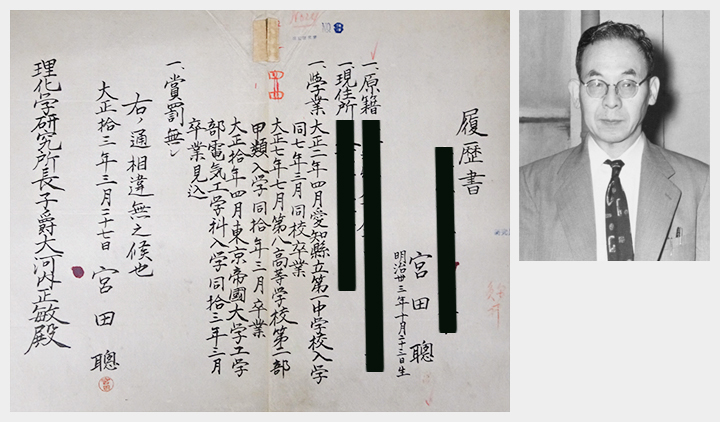 履歴書
宮田聰
明治廿三年十月二十三日生
一、原籍
一、現住所
一、學業
大正二年四月愛知縣立第一中学校入学
同七年三月同校卒業
大正七年七月第八高等学校第二部
甲類入学同拾年三月卒業
大正拾年四月東京帝國大学工学
部電気工学科入学同拾三年三月
卒業見込
一、賞罰無し
右ノ通相違無之候也
大正拾三年三月二十七日
宮田聰
理化学研究所長子爵大河内正敏殿